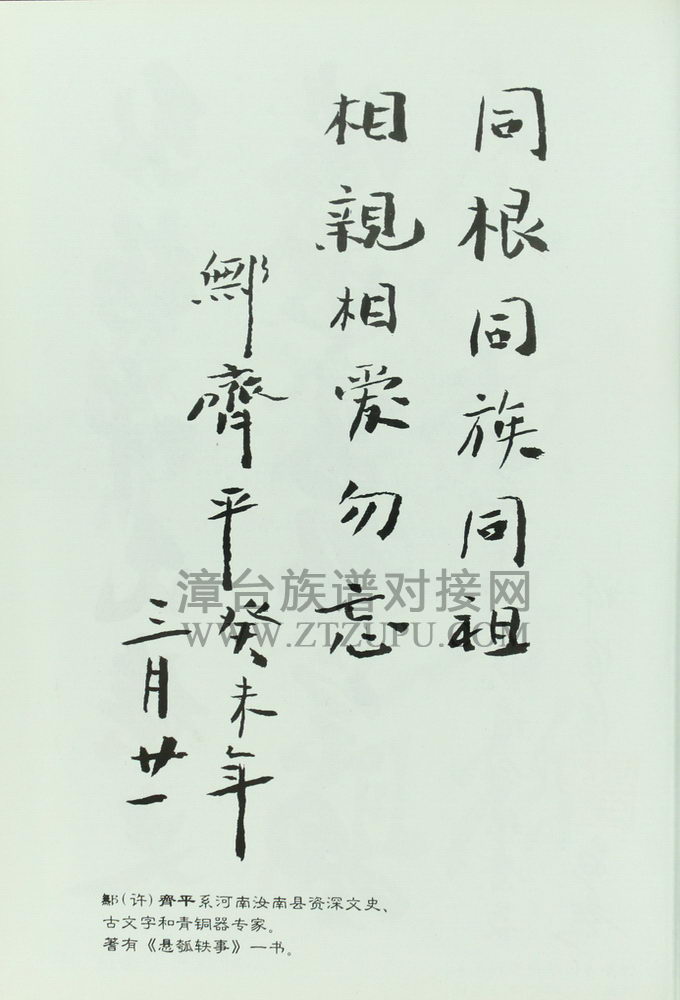 同根同族同祖
相親相愛勿忘
鄦齊平癸未年
三月廿一
漳台族谱对接网
WWW.ZTZUPU.COM
鄦(许)齊平系河南汝南县资深文史、
古文字和青铜器专家。
著有《悬瓠轶事》一书。